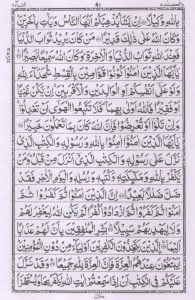 ٩١
وَكِيْلًا ۝ اِنْ يَّشَاْ يُذْهِبْكُمْ اَيُّهَا النَّاسُ وَيَاْتِ بِاٰخَرِيْنَ
وَكَانَ اللّٰهُ عَلٰى ذٰلِكَ قَدِيْرًا ۝ مَنْ كَانَ يُرِيْدُ ثَوَابَ الدُّنْيَا
فَعِنْدَ اللّٰهِ ثَوَابُ الدُّنْيَا وَالْاٰخِرَةِ وَكَانَ اللّٰهُ سَمِيْعًا بَصِيْرًا ۝
يٰاَيُّهَا الَّذِيْنَ اٰمَنُوْا كُوْنُوْا قَوّٰمِيْنَ بِالْقِسْطِ شُهَدَآءَ لِلّٰهِ
وَلَوْ عَلٰى اَنْفُسِكُمْ اَوِ الْوَالِدَيْنِ وَالْاَقْرَبِيْنَ اِنْ يَّكُنْ غَنِيًّا
اَوْ فَقِيْرًا فَاللّٰهُ اَوْلٰى بِهِمَا فَلَا تَتَّبِعُوا الْهَوٰى اَنْ تَعْدِلُوْا
وَاِنْ تَلْوٗا اَوْ تُعْرِضُوْا فَاِنَّ اللّٰهَ كَانَ بِمَا تَعْمَلُوْنَ خَبِيْرًا ۝
يٰاَيُّهَا الَّذِيْنَ اٰمَنُوْا اٰمِنُوْا بِاللّٰهِ وَرَسُوْلِهٖ وَالْكِتٰبِ الَّذِيْ
نَزَّلَ عَلٰى رَسُوْلِهٖ وَالْكِتٰبِ الَّذِيْ اَنْزَلَ مِنْ قَبْلُ وَمَنْ
يَّكْفُرْ بِاللّٰهِ وَمَلٰٓئِكَتِهٖ وَكُتُبِهٖ وَرُسُلِهٖ وَالْيَوْمِ الْاٰخِرِ فَقَدْ
ضَلَّ ضَلٰلًا بَعِيْدًا ۝ اِنَّ الَّذِيْنَ اٰمَنُوْا ثُمَّ كَفَرُوْا ثُمَّ
اٰمَنُوْا ثُمَّ كَفَرُوْا ثُمَّ ازْدَادُوْا كُفْرًا لَّمْ يَكُنِ اللّٰهُ لِيَغْفِرَ لَهُمْ
وَلَا لِيَهْدِيَهُمْ سَبِيْلًا ۝ بَشِّرِ الْمُنٰفِقِيْنَ بِاَنَّ لَهُمْ عَذَابًا
اَلِيْمًا ۝ الَّذِيْنَ يَتَّخِذُوْنَ الْكٰفِرِيْنَ اَوْلِيَآءَ مِنْ دُوْنِ الْمُؤْمِنِيْنَ
اَيَبْتَغُوْنَ عِنْدَهُمُ الْعِزَّةَ فَاِنَّ الْعِزَّةَ لِلّٰهِ جَمِيْعًا ۝ وَقَدْ نَزَّلَ
عَلَيْكُمْ فِى الْكِتٰبِ اَنْ اِذَا سَمِعْتُمْ اٰيٰتِ اللّٰهِ يُكْفَرُ بِهَا وَيُسْتَهْزَاُ